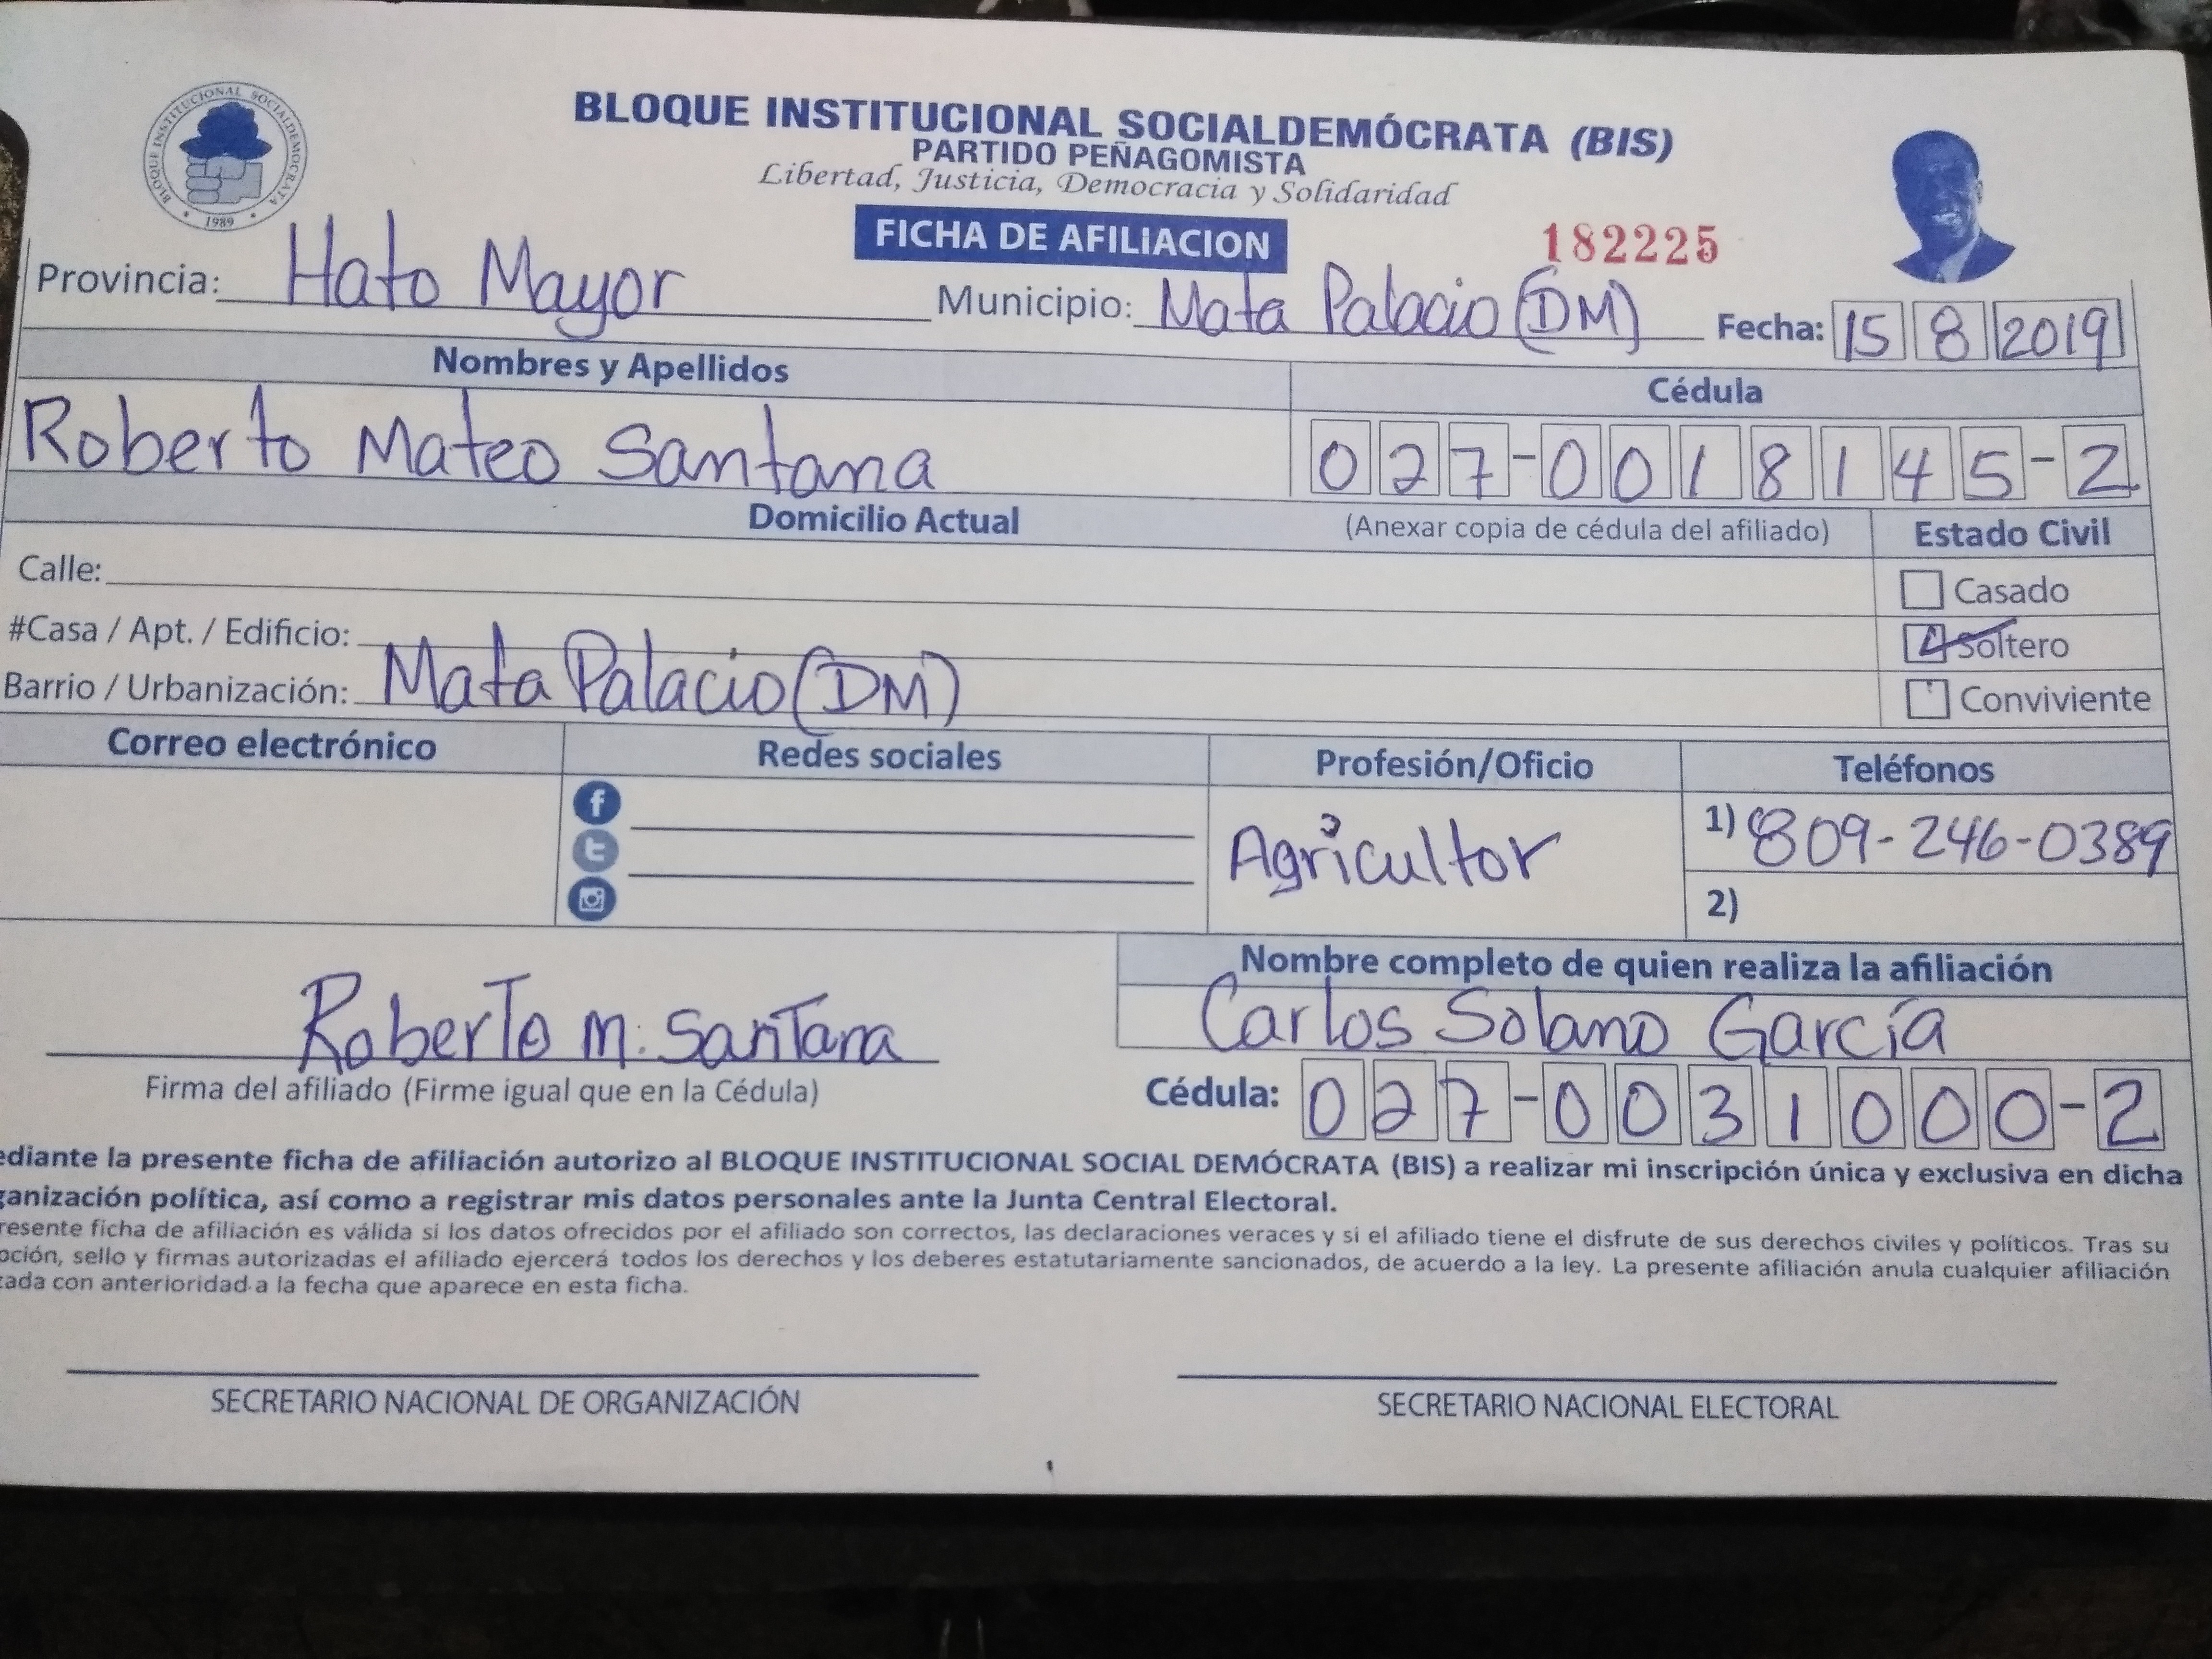 BLOQUE INSTITUCIONAL SOCIALDEMOCRATA
1989
BLOQUE INSTITUCIONAL SOCIALDEMÓCRATA (BIS)
PARTIDO PEÑAGOMISTA
Libertad, Justicia, Democracia y Solidaridad
FICHA DE AFILIACION
182225
Provincia: Hato Mayor Municipio: Mata Palacio (DM) Fecha: 15 8 2019
Nombres y Apellidos Cédula
Roberto Mateo Santana 027-0018145-2
Domicilio Actual (Anexar copia de cédula del afiliado) Estado Civil
Calle: Casado
#Casa / Apt. / Edificio: Soltero
Barrio / Urbanización: Mata Palacio (DM) Conviviente
Correo electrónico Redes sociales Profesión/Oficio Teléfonos
Agricultor 1) 809-246-0389
2)
Nombre completo de quien realiza la afiliación
Roberto M. Santana Carlos Solano García
Firma del afiliado (Firme igual que en la Cédula) Cédula: 027-0031000-2
ediante la presente ficha de afiliación autorizo al BLOQUE INSTITUCIONAL SOCIAL DEMÓCRATA (BIS) a realizar mi inscripción única y exclusiva en dicha
ganización política, así como a registrar mis datos personales ante la Junta Central Electoral.
resente ficha de afiliación es válida si los datos ofrecidos por el afiliado son correctos, las declaraciones veraces y si el afiliado tiene el disfrute de sus derechos civiles y políticos. Tras su
pción, sello y firmas autorizadas el afiliado ejercerá todos los derechos y los deberes estatutariamente sancionados, de acuerdo a la ley. La presente afiliación anula cualquier afiliación
zada con anterioridad a la fecha que aparece en esta ficha.
SECRETARIO NACIONAL DE ORGANIZACIÓN SECRETARIO NACIONAL ELECTORAL